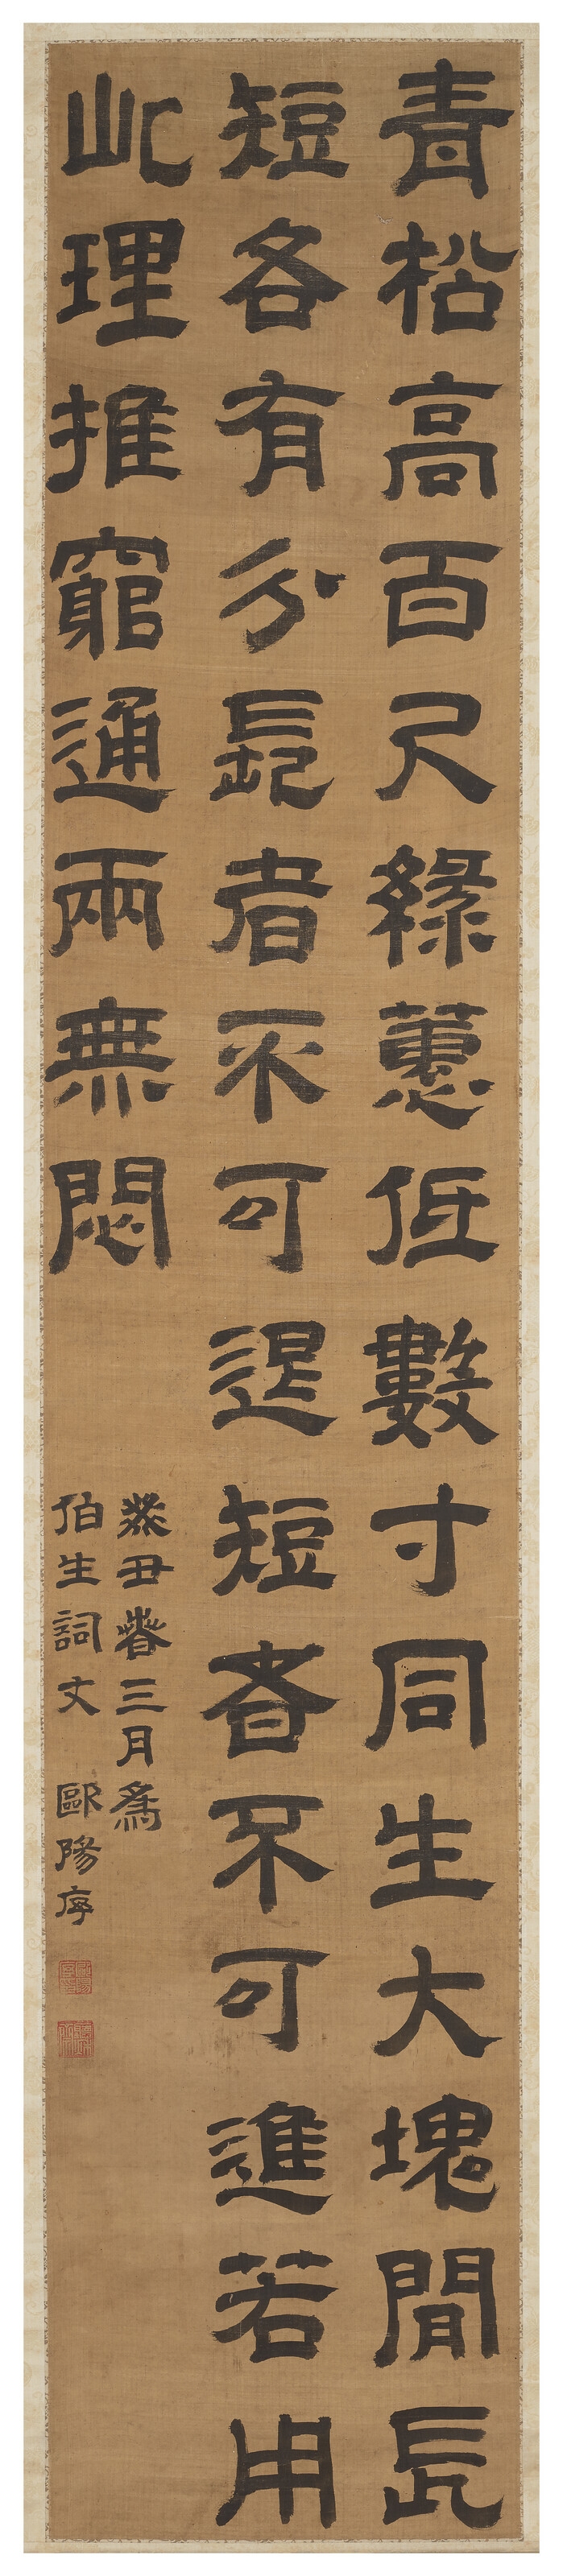 青松高百尺綠蕙低數寸同生大塊閒長
短各有分長者不可退短者不可進若用
此理推窮通兩無悶
癸丑春三月為
伯生詞丈 歐陽序